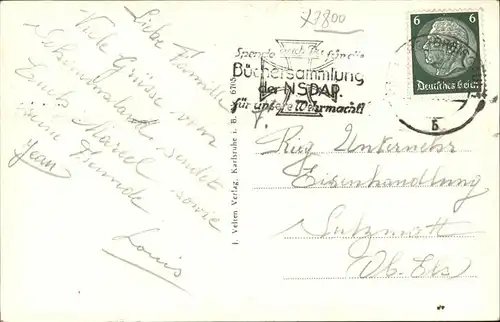 x7800
6 6
Deutsches Reich
Spende auch Du für die
Büchersammlung
der NSDAP.
für unsere Wehrmacht!
b
Liebe Familie
Viele Grüsse vom
sendet
Euch Marcel sowie
seine Freunde
Jean
Louis
I. Velten Verlag, Karlsruhe i. B.
Rug Unternehr
Eisenhandlung
Sulzmatt
Ob. Els